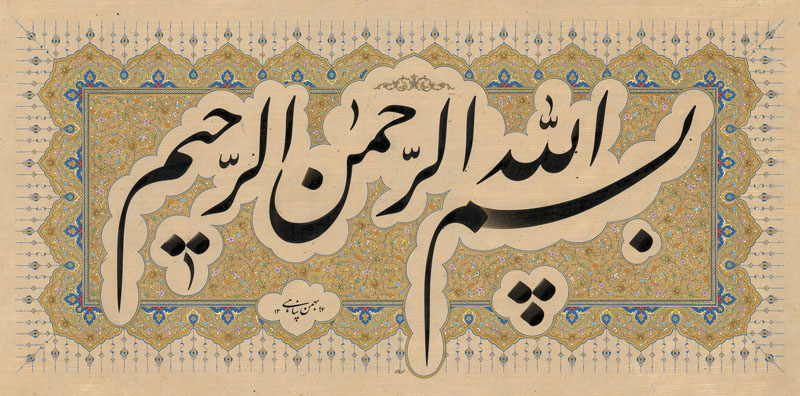 بسم الله الرحمن الرحیم
بهمن پناهی